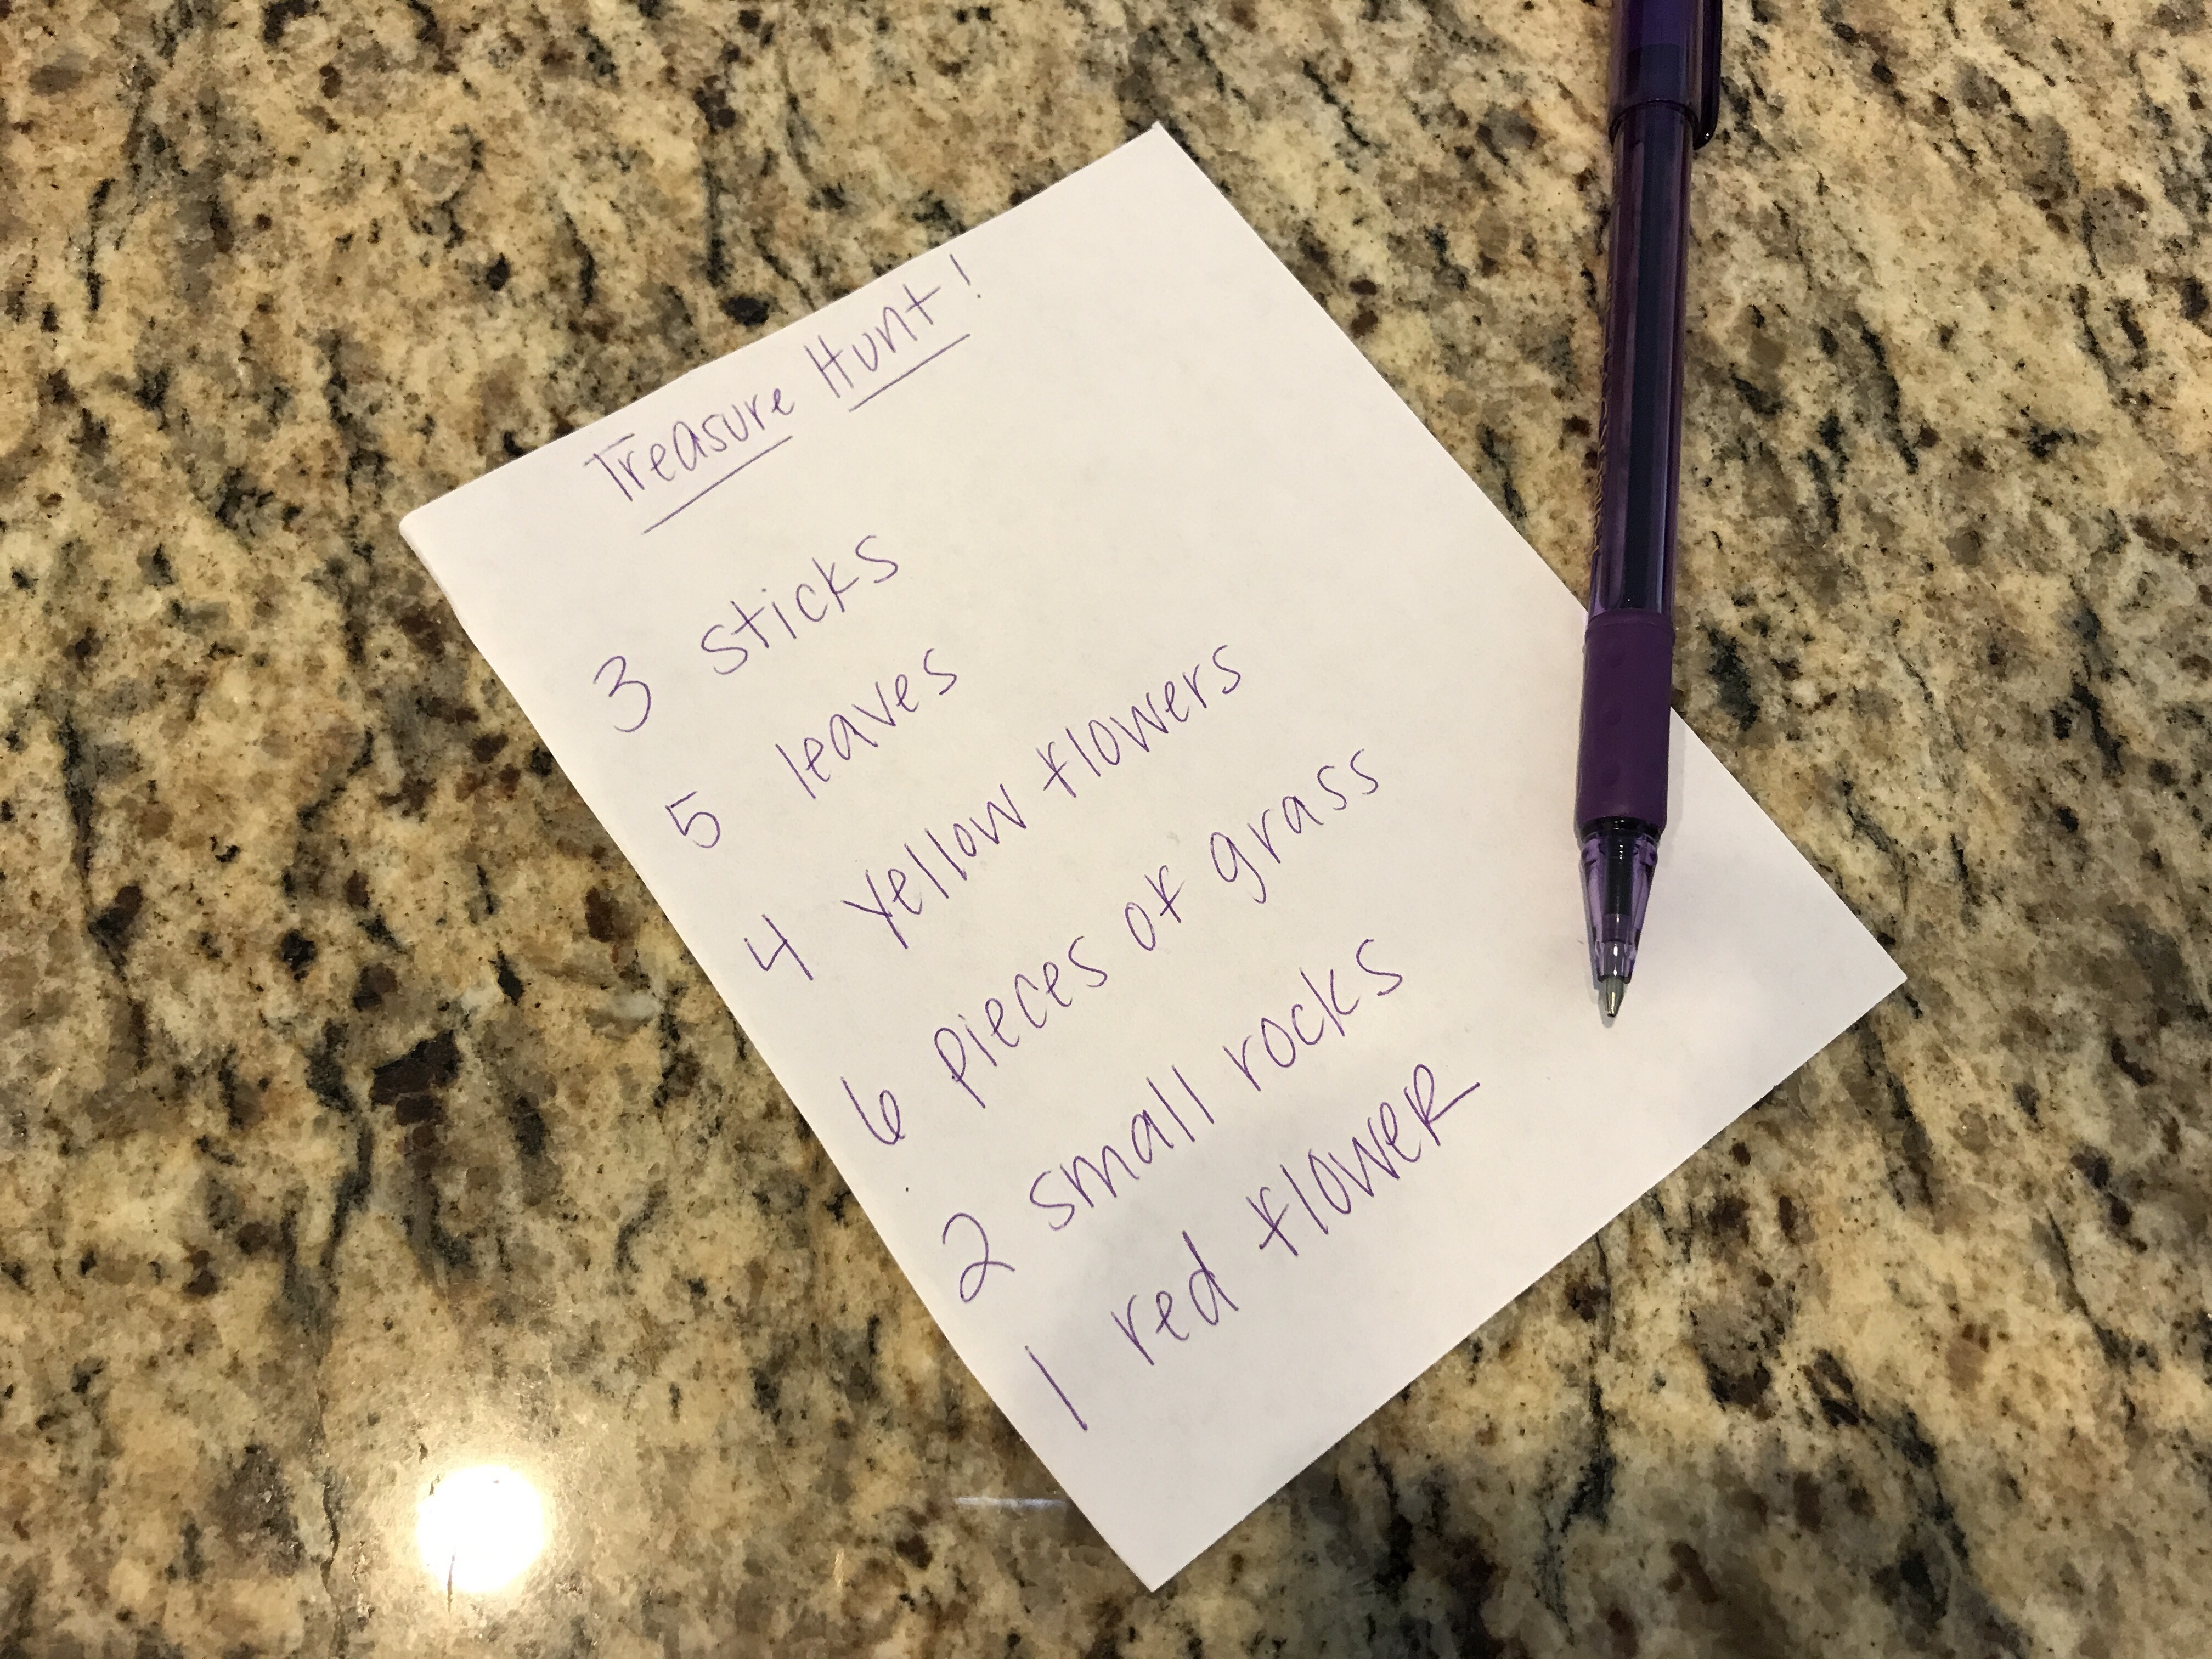 Treasure Hunt!
3 sticks
5 leaves
4 Yellow flowers
6 pieces of grass
2 small rocks
1 red flower